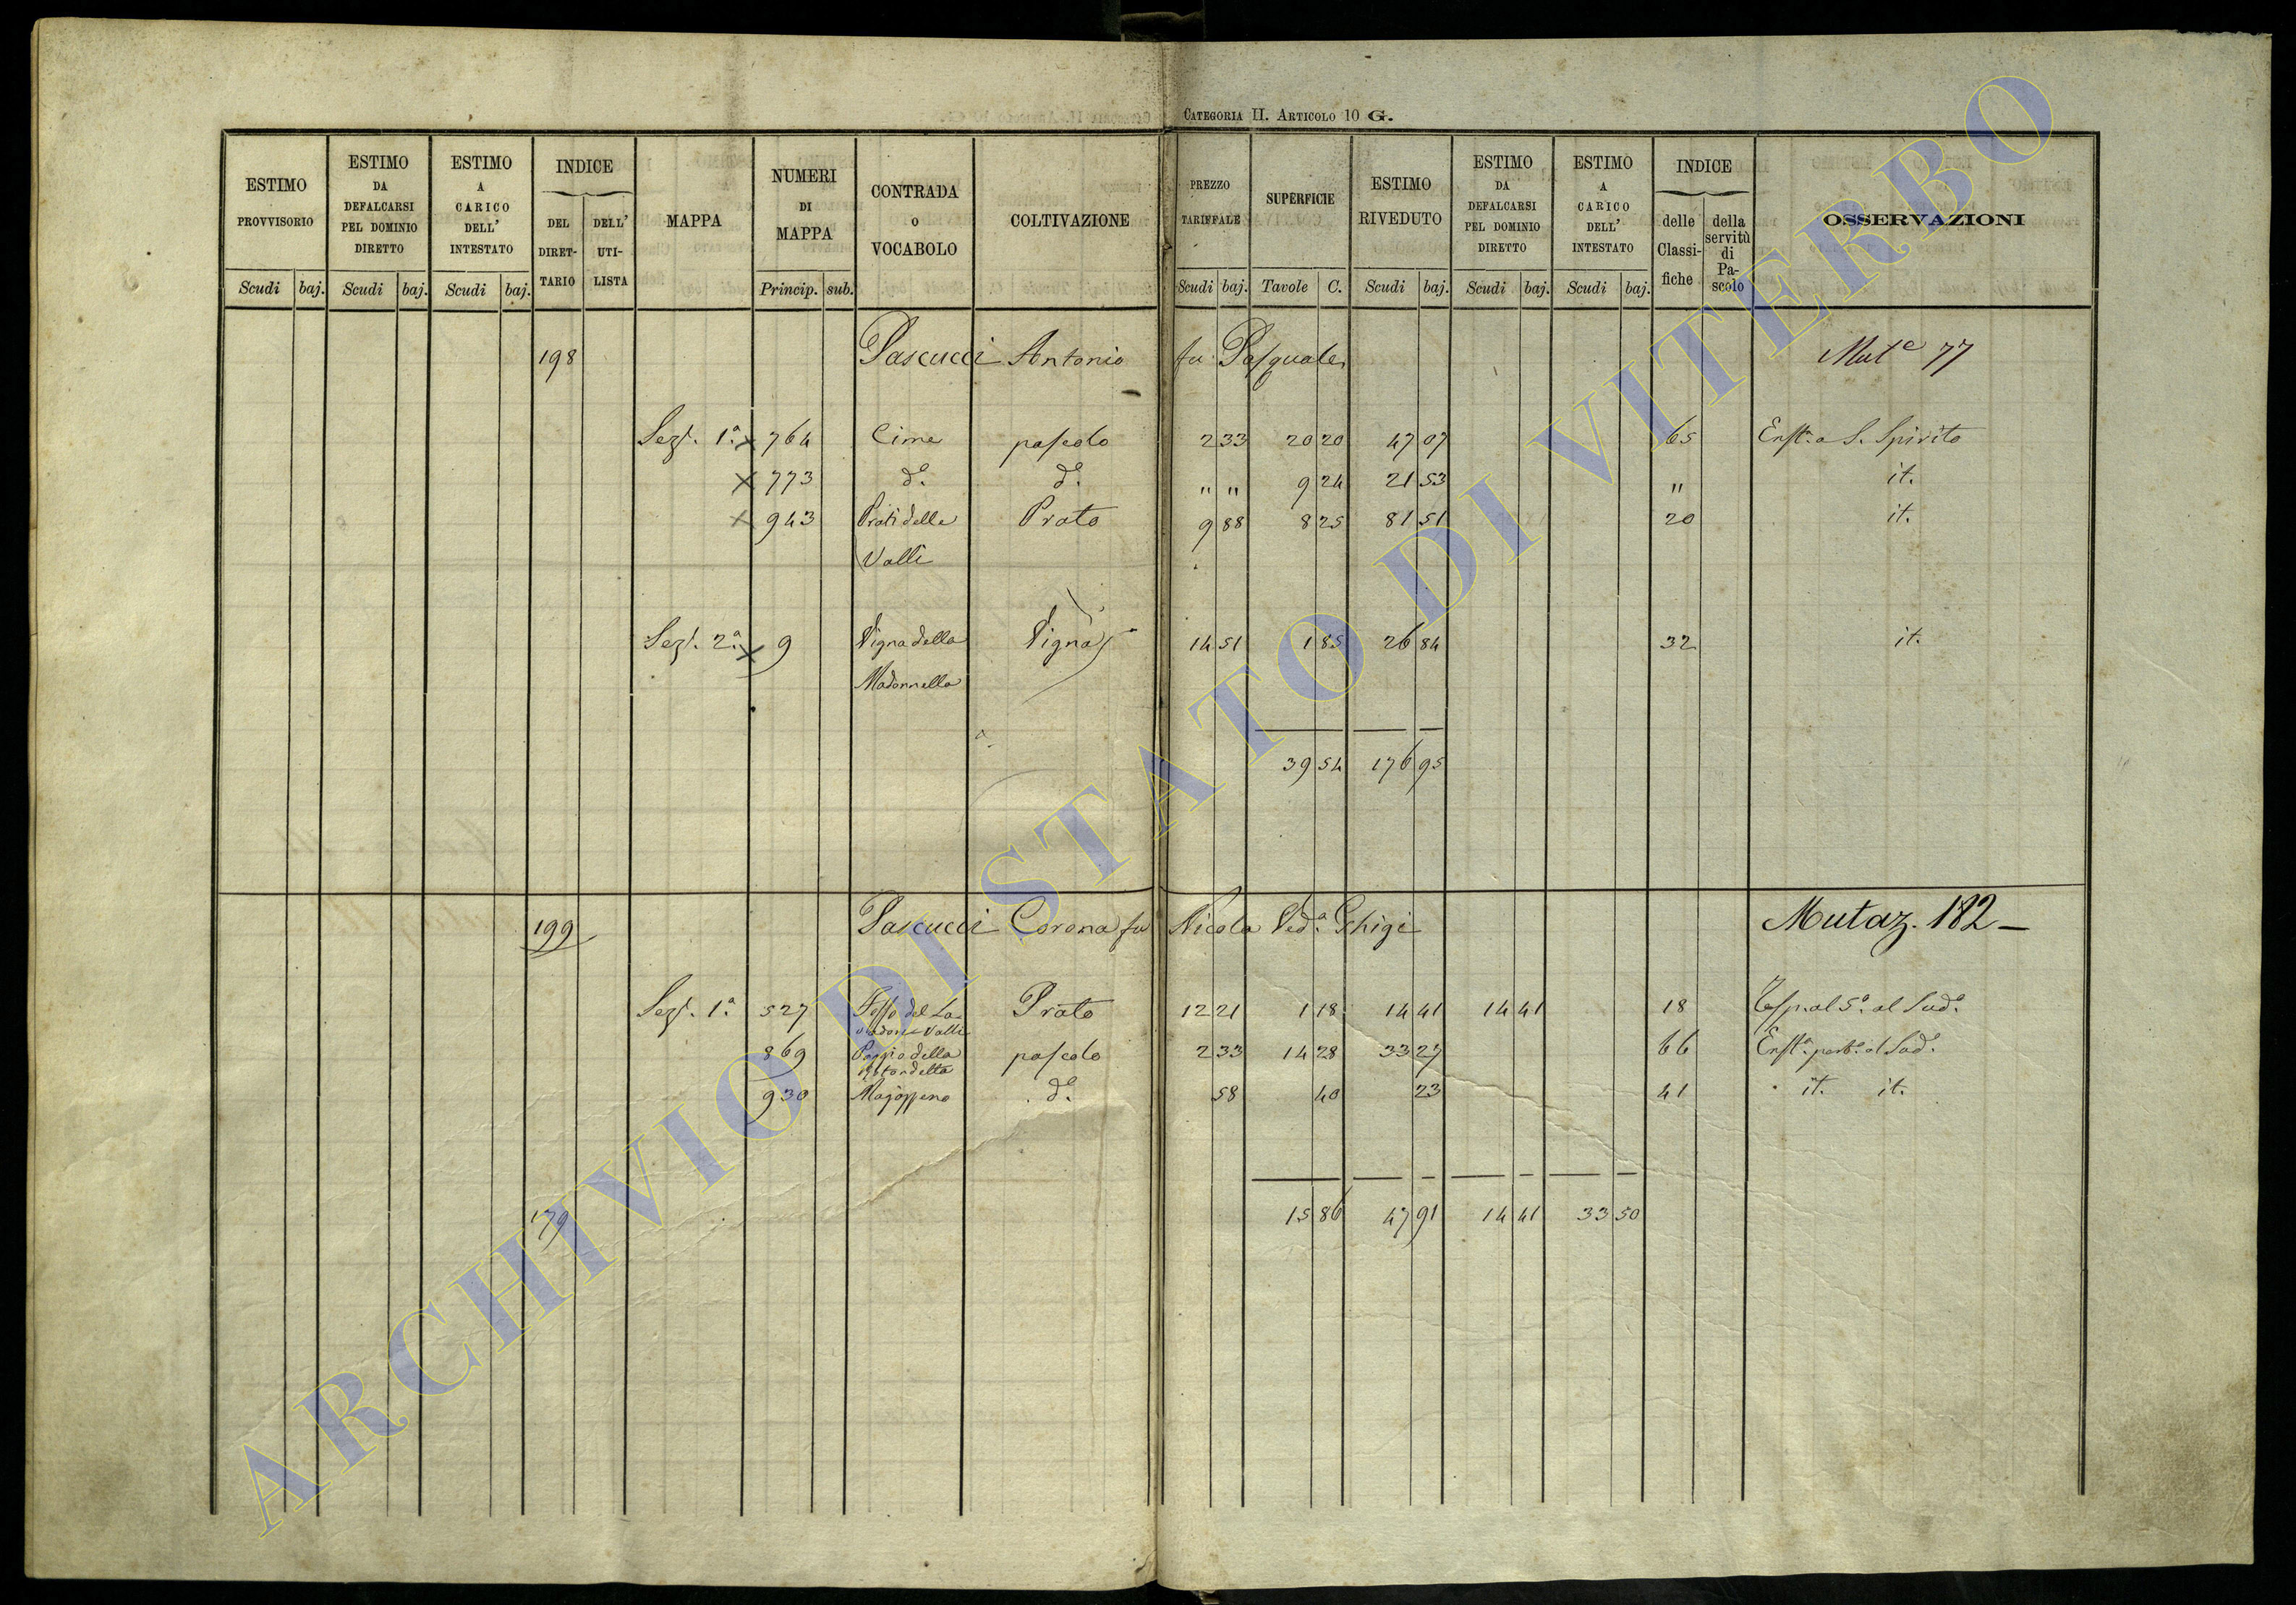 CATEGORIA II. ARTICOLO 10 G.
ESTIMO PROVVISORIO Scudi baj.
ESTIMO DA DEFALCARSI PEL DOMINIO DIRETTO Scudi baj.
ESTIMO A CARICO DELL' INTESTATO Scudi baj.
INDICE DEL DIRET-TARIO DELL' UTI-LISTA
MAPPA
NUMERI DI MAPPA Princip. sub.
CONTRADA O VOCABOLO
COLTIVAZIONE
PREZZO TARIFFALE Scudi baj.
SUPERFICIE Tavole C.
ESTIMO RIVEDUTO Scudi baj.
ESTIMO DA DEFALCARSI PEL DOMINIO DIRETTO Scudi baj.
ESTIMO A CARICO DELL' INTESTATO Scudi baj.
INDICE delle Classi-fiche della servitù di Pa-scolo
OSSERVAZIONI
198 Pascucci Antonio fu Pasquale Mutᵉ 77
Sezᵉ. 1ª. x 764 Cime pascolo 2 33 20 20 47 07 65 Enftª. a S. Spirito
x 773 dº. dº. " " 9 24 21 53 " it.
x 943 Prati delle Prato 9 88 8 25 81 51 20 it.
Valli
Sezᵉ. 2ª. x 9 Vigna della Vigna 14 51 1 85 26 84 32 it.
Madonnella
39 54 176 95
199 Pascucci Corona fu Nicola Vedª. Ghigi Mutaz. 182 –
Sezᵉ. 1ª. 527 Fosso del La- Prato 12 21 1 18 14 41 14 41 18 al 5º. al Sudº.
Valli
869 Poggio della pascolo 2 33 14 28 33 27 66 Enftª. perpª. al Sudº.
Rotondella
930 Majoppeno dº. 58 40 23 41 it. it.
15 86 47 91 14 41 33 50
179
ARCHIVIO DI STATO DI VITERBO